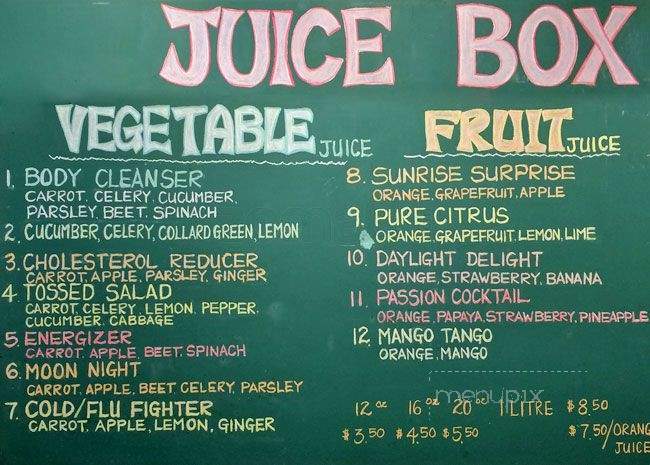 JUICE BOX
VEGETABLE JUICE
1. BODY CLEANSER
CARROT, CELERY, CUCUMBER,
PARSLEY, BEET, SPINACH
2. CUCUMBER, CELERY, COLLARD GREEN, LEMON
3. CHOLESTEROL REDUCER
CARROT, APPLE, PARSLEY, GINGER
4. TOSSED SALAD
CARROT, CELERY, LEMON, PEPPER,
CUCUMBER, CABBAGE
5. ENERGIZER
CARROT, APPLE, BEET, SPINACH
6. MOON NIGHT
CARROT, APPLE, BEET CELERY, PARSLEY
7. COLD/FLU FIGHTER
CARROT, APPLE, LEMON, GINGER
FRUIT JUICE
8. SUNRISE SURPRISE
ORANGE, GRAPEFRUIT, APPLE
9. PURE CITRUS
ORANGE, GRAPEFRUIT, LEMON, LIME
10. DAYLIGHT DELIGHT
ORANGE, STRAWBERRY, BANANA
11. PASSION COCKTAIL
ORANGE, PAPAYA, STRAWBERRY, PINEAPPLE
12. MANGO TANGO
ORANGE, MANGO
menupix
12 oz 16 oz 20 oz 1 LITRE $8.50
$3.50 $4.50 $5.50 $7.50/ORANG
JUICE